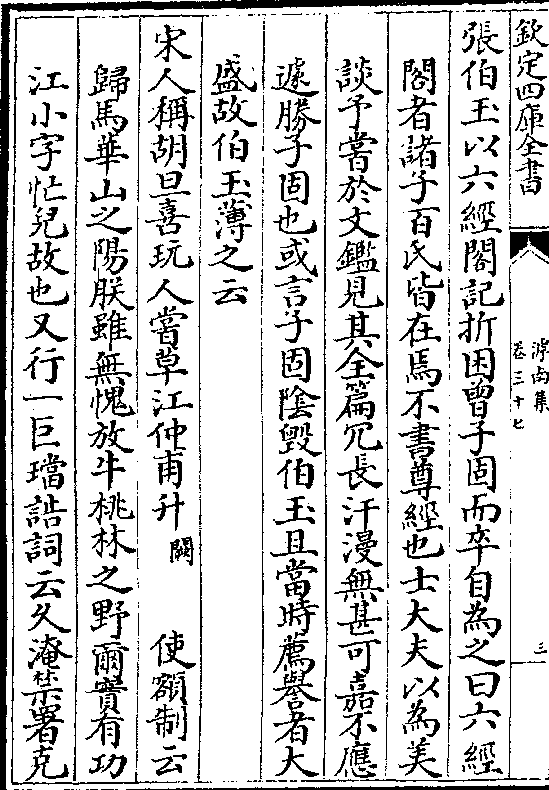 欽定四庫全書
滹南集
卷三十七
三
張伯玉以六經閣記折困曾子固而卒自為之曰六經
閣者諸子百氏皆在焉不書尊經也士大夫以為美
談予嘗於文鑑見其全篇冗長汗漫無甚可嘉不應
遽勝子固也或言子固陰毀伯玉且當時薦譽者大
盛故伯玉薄之云
宋人稱胡旦喜玩人嘗草江仲甫升闕使額制云
歸馬華山之陽朕雖無愧放牛桃林之野爾實有功
江小字忙兒故也又行一巨璫誥詞云久淹禁署克